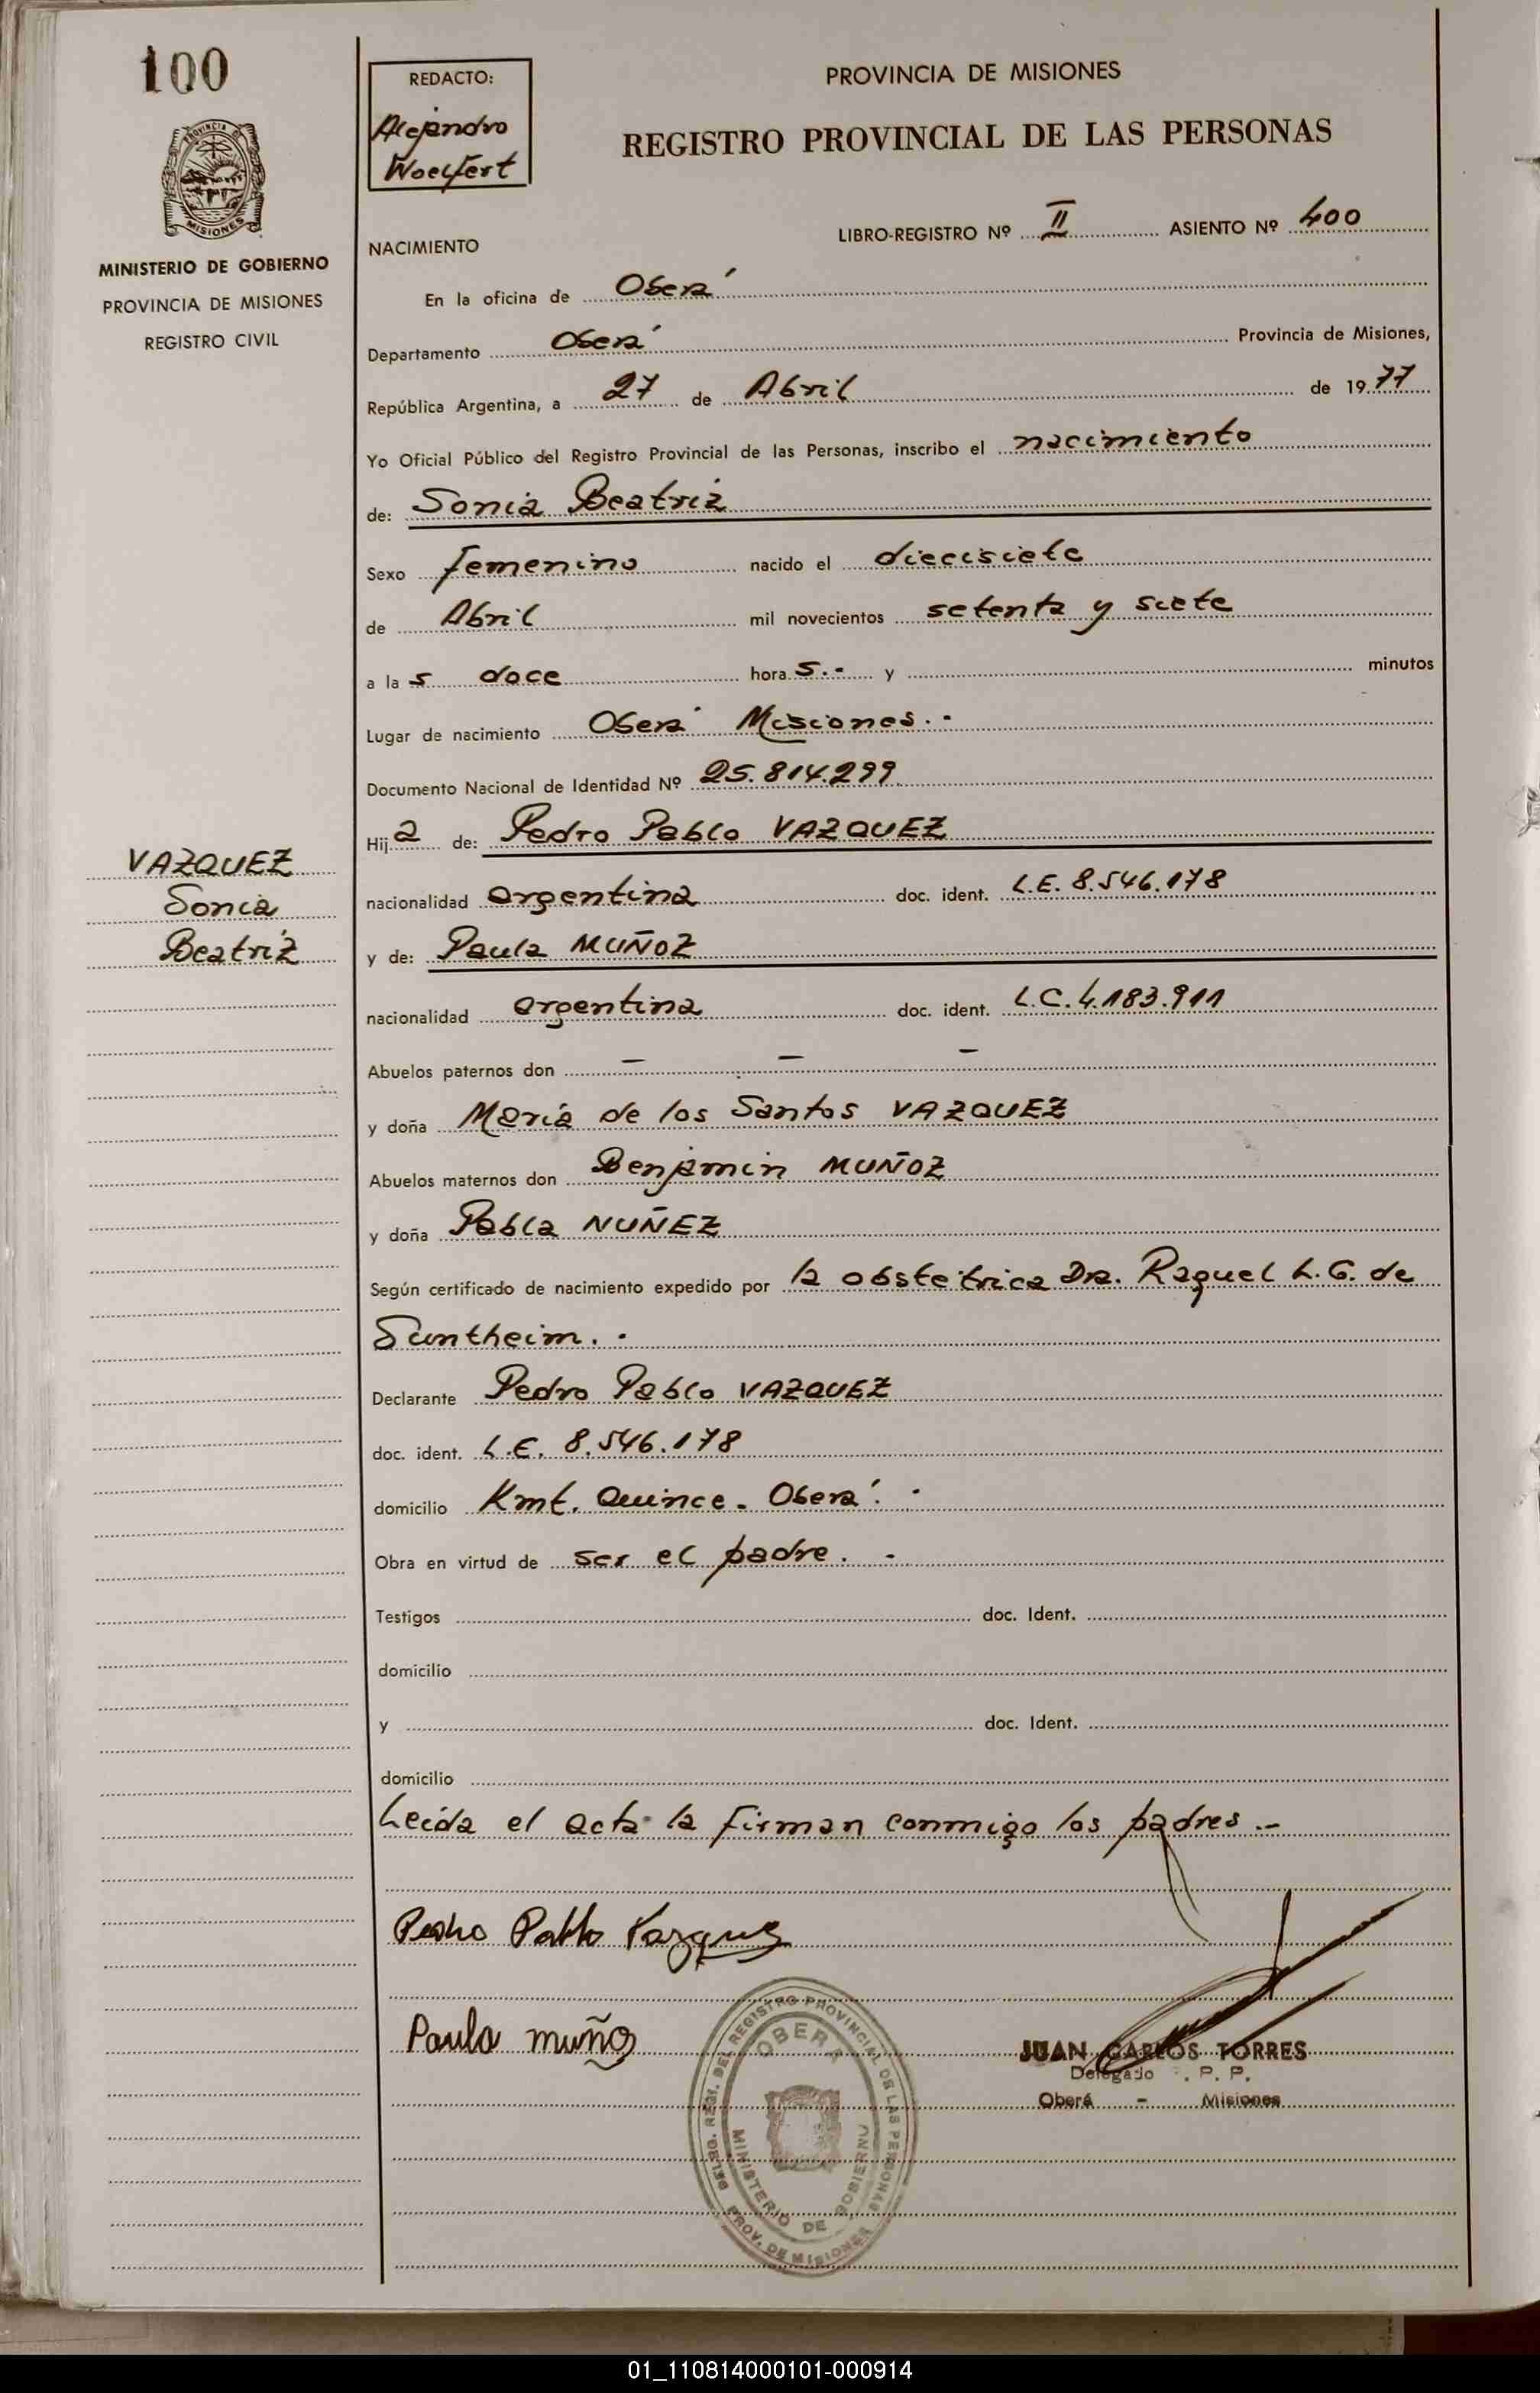 100
REDACTO:
Alejandro
Woelfert
PROVINCIA DE MISIONES
REGISTRO PROVINCIAL DE LAS PERSONAS
MINISTERIO DE GOBIERNO
PROVINCIA DE MISIONES
REGISTRO CIVIL
NACIMIENTO
LIBRO-REGISTRO Nº II ASIENTO Nº 400
En la oficina de Oberá
Departamento Oberá Provincia de Misiones,
República Argentina, a 27 de Abril de 1977
Yo Oficial Público del Registro Provincial de las Personas, inscribo el nacimiento
de: Sonia Beatriz
Sexo femenino nacido el diecisiete
de Abril mil novecientos setenta y siete
a las doce horas.- y minutos
Lugar de nacimiento Oberá Misiones.-
Documento Nacional de Identidad Nº 25.814.299
Hija de: Pedro Pablo VAZQUEZ
VAZQUEZ
Sonia
Beatriz
nacionalidad argentina doc. ident. L.E. 8.546.178
y de: Paula MUÑOZ
nacionalidad argentina doc. ident. L.C. 4.183.911
Abuelos paternos don — — —
y doña María de los Santos VAZQUEZ
Abuelos maternos don Benjamin MUÑOZ
y doña Pabla NUÑEZ
Según certificado de nacimiento expedido por la obstetrica Dra. Raquel L.G. de
Suntheim.-
Declarante Pedro Pablo VAZQUEZ
doc. ident. L.E. 8.546.178
domicilio Kmt. Quince - Oberá.-
Obra en virtud de ser el padre.-
Testigos doc. Ident.
domicilio
y doc. Ident.
domicilio
Leida el acta la firman conmigo los padres.-
Pedro Pablo Vazquez
Paula muño
DELEG. REGI. DEL REGISTRO PROVINCIAL DE LAS PERSONAS
OBERA
MINISTERIO DE GOBIERNO
PROV. DE MISIONES
JUAN CARLOS TORRES
Delegado . P. P.
Oberá - Misiones
01_110814000101-000914